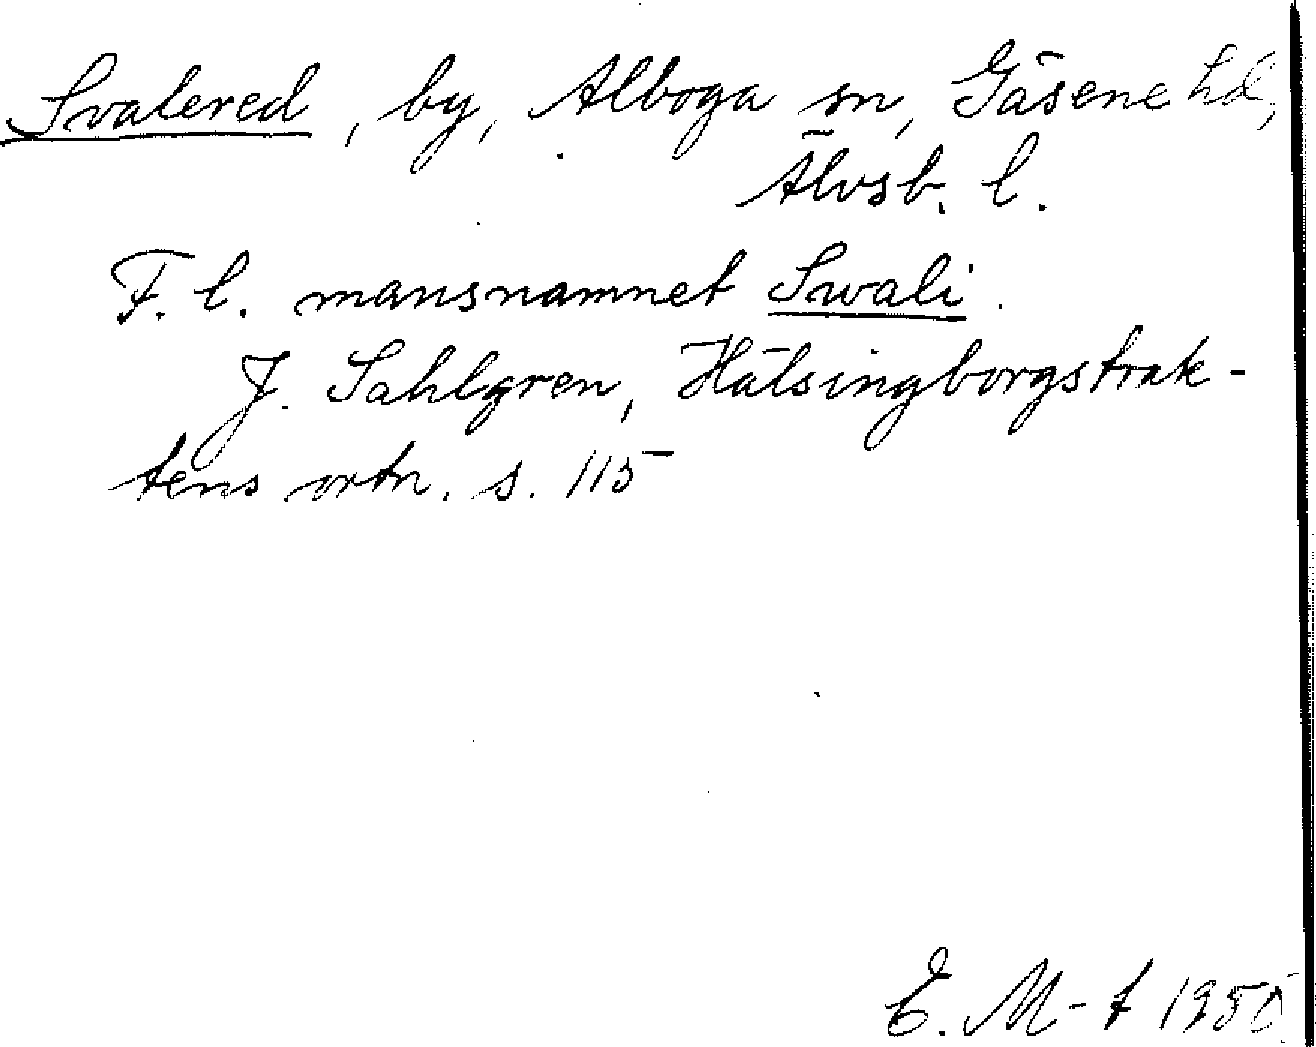 Svalered, by, Alboga sn, Gäsene hd,
Älvsb. l.
F. l. mansnamnet Swali.
J. Sahlgren, Hälsingborgstrak-
tens ortn. s. 115
E. M-t 1950